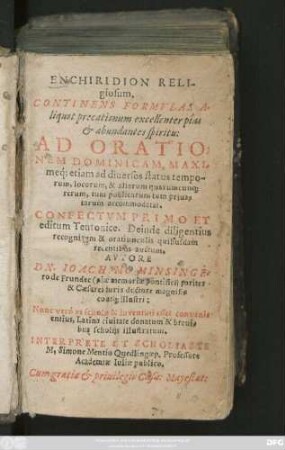 ENCHIRIDION RELI-
giosum,
CONTINENS FORMULAS A-
liquot precationum excellenter pias
& abundantes spiritu:
AD ORATIO-
NEM DOMINICAM, MAXI-
meq; etiam ad diuersos status tempo-
rum, locorum, & aliarum quarumcunq;
rerum, tum publicarum tum priua-
tarum accommodatas.
CONFECTVM PRIMO ET
editum Teutonice. Deinde diligentius
recognitum & oratiunculis quibusdam
recentibus auctum,
AVTORE
DN. IOACHIMO MINSINGE-
ro de Frundec piæ memoriæ pontificii pariter
& Cæsarei iuris doctore magnisq;
illustri:
Nunc vero in
Latina ciuitate donatum & breui-
busq; scholijs illustratum,
INTERPRETE ET SCHOLIASTE
M. Simone Mentio Quedlingop. Professore
Academiæ Iuliæ publico.
Cum gratia & priuilegio Cæsar: Majestatis